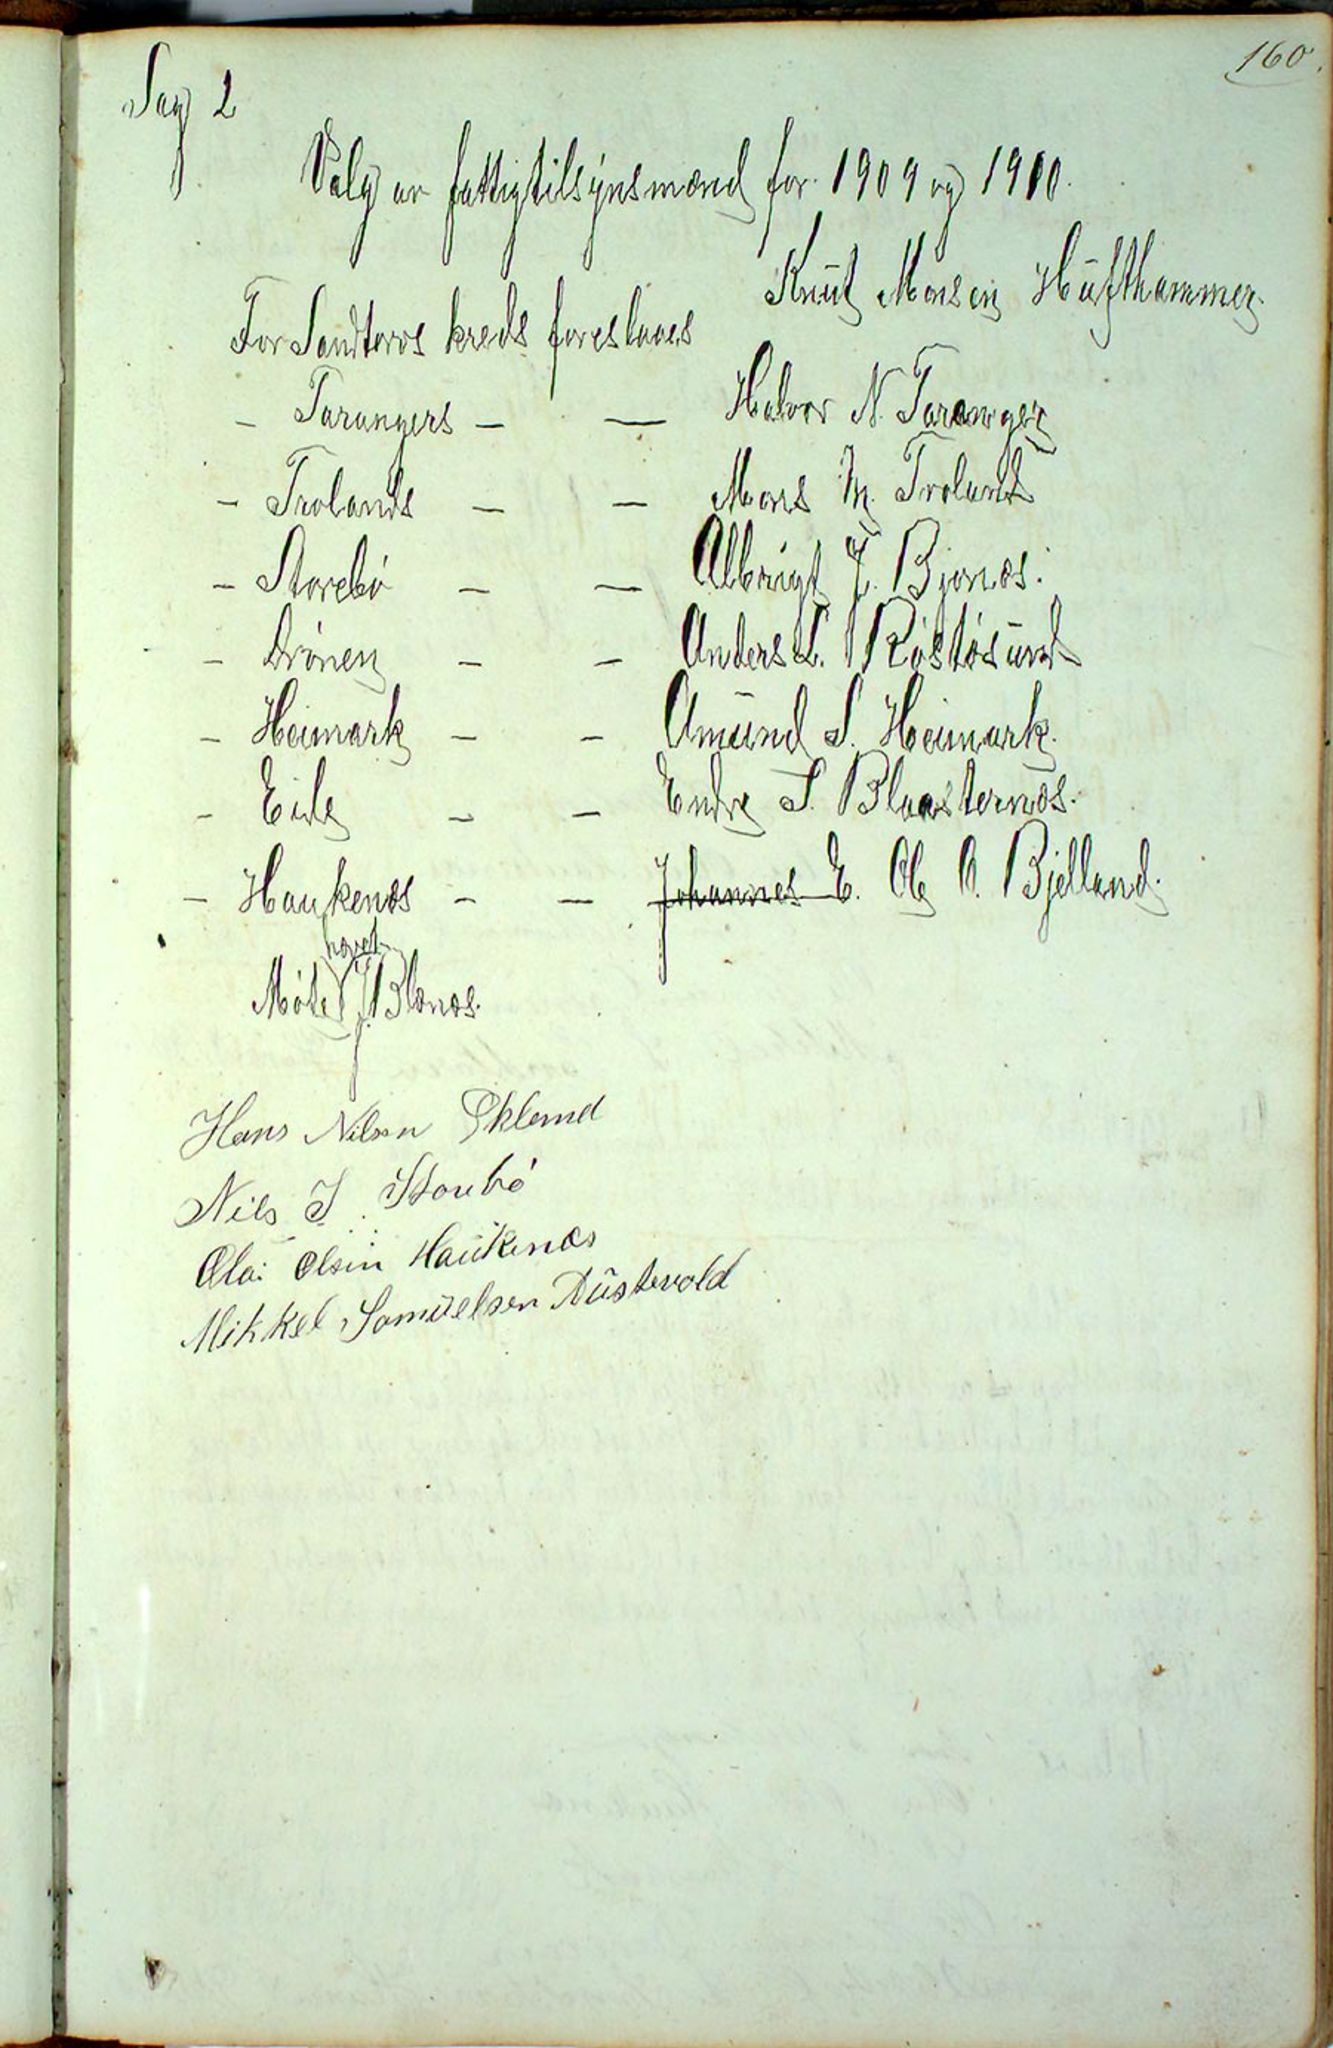 160.
Sag 2
Valg av fattigtilsynsmænd for 1909 og 1910.
For Sandtorvs kreds foreslaaes Knut Monsen Hufthammer
– Tarangers – — Halvor N. Taranger
– Trolands – – Mons M. Troland
– Storebø – — Albrigt J. Bjønæs.
– Drønen – – Anders L. Røstøsund
– Heimark – – Amund S. Heimark.
– Eide – – Endre S. Blaasternes.
– Haukenæs – – Johannes E. Ole O. Bjelland.
Møtet hævet
J. Blænæs.
Hans Nilsen Ekland
Nils J. Storebø
Olai Olsen Haukenæs
Mikkel Samuelsen Austevold